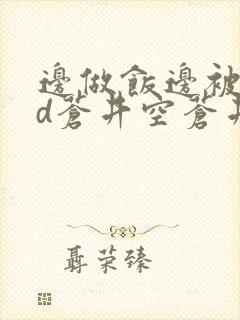 邊做飯邊被
d蒼井空蒼井
聶荣臻